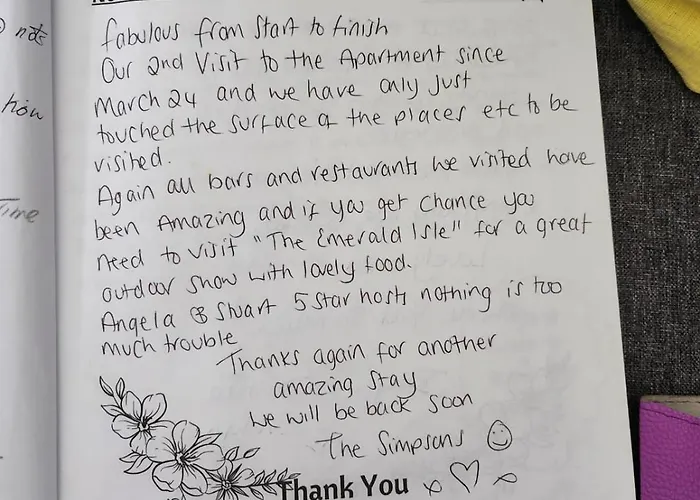 note
how
Time
fabulous from start to finish
Our 2nd Visit to the Apartment since
March 24 and we have only just
touched the surface of the places etc to be
visited.
Again all bars and restaurants we visited have
been Amazing and if you get chance you
need to visit "The Emerald Isle" for a great
outdoor show with lovely food.
Angela & Stuart 5 Star hosts nothing is too
much trouble
Thanks again for another
amazing stay
We will be back soon
The Simpsons ☺
Thank You x ♡ x